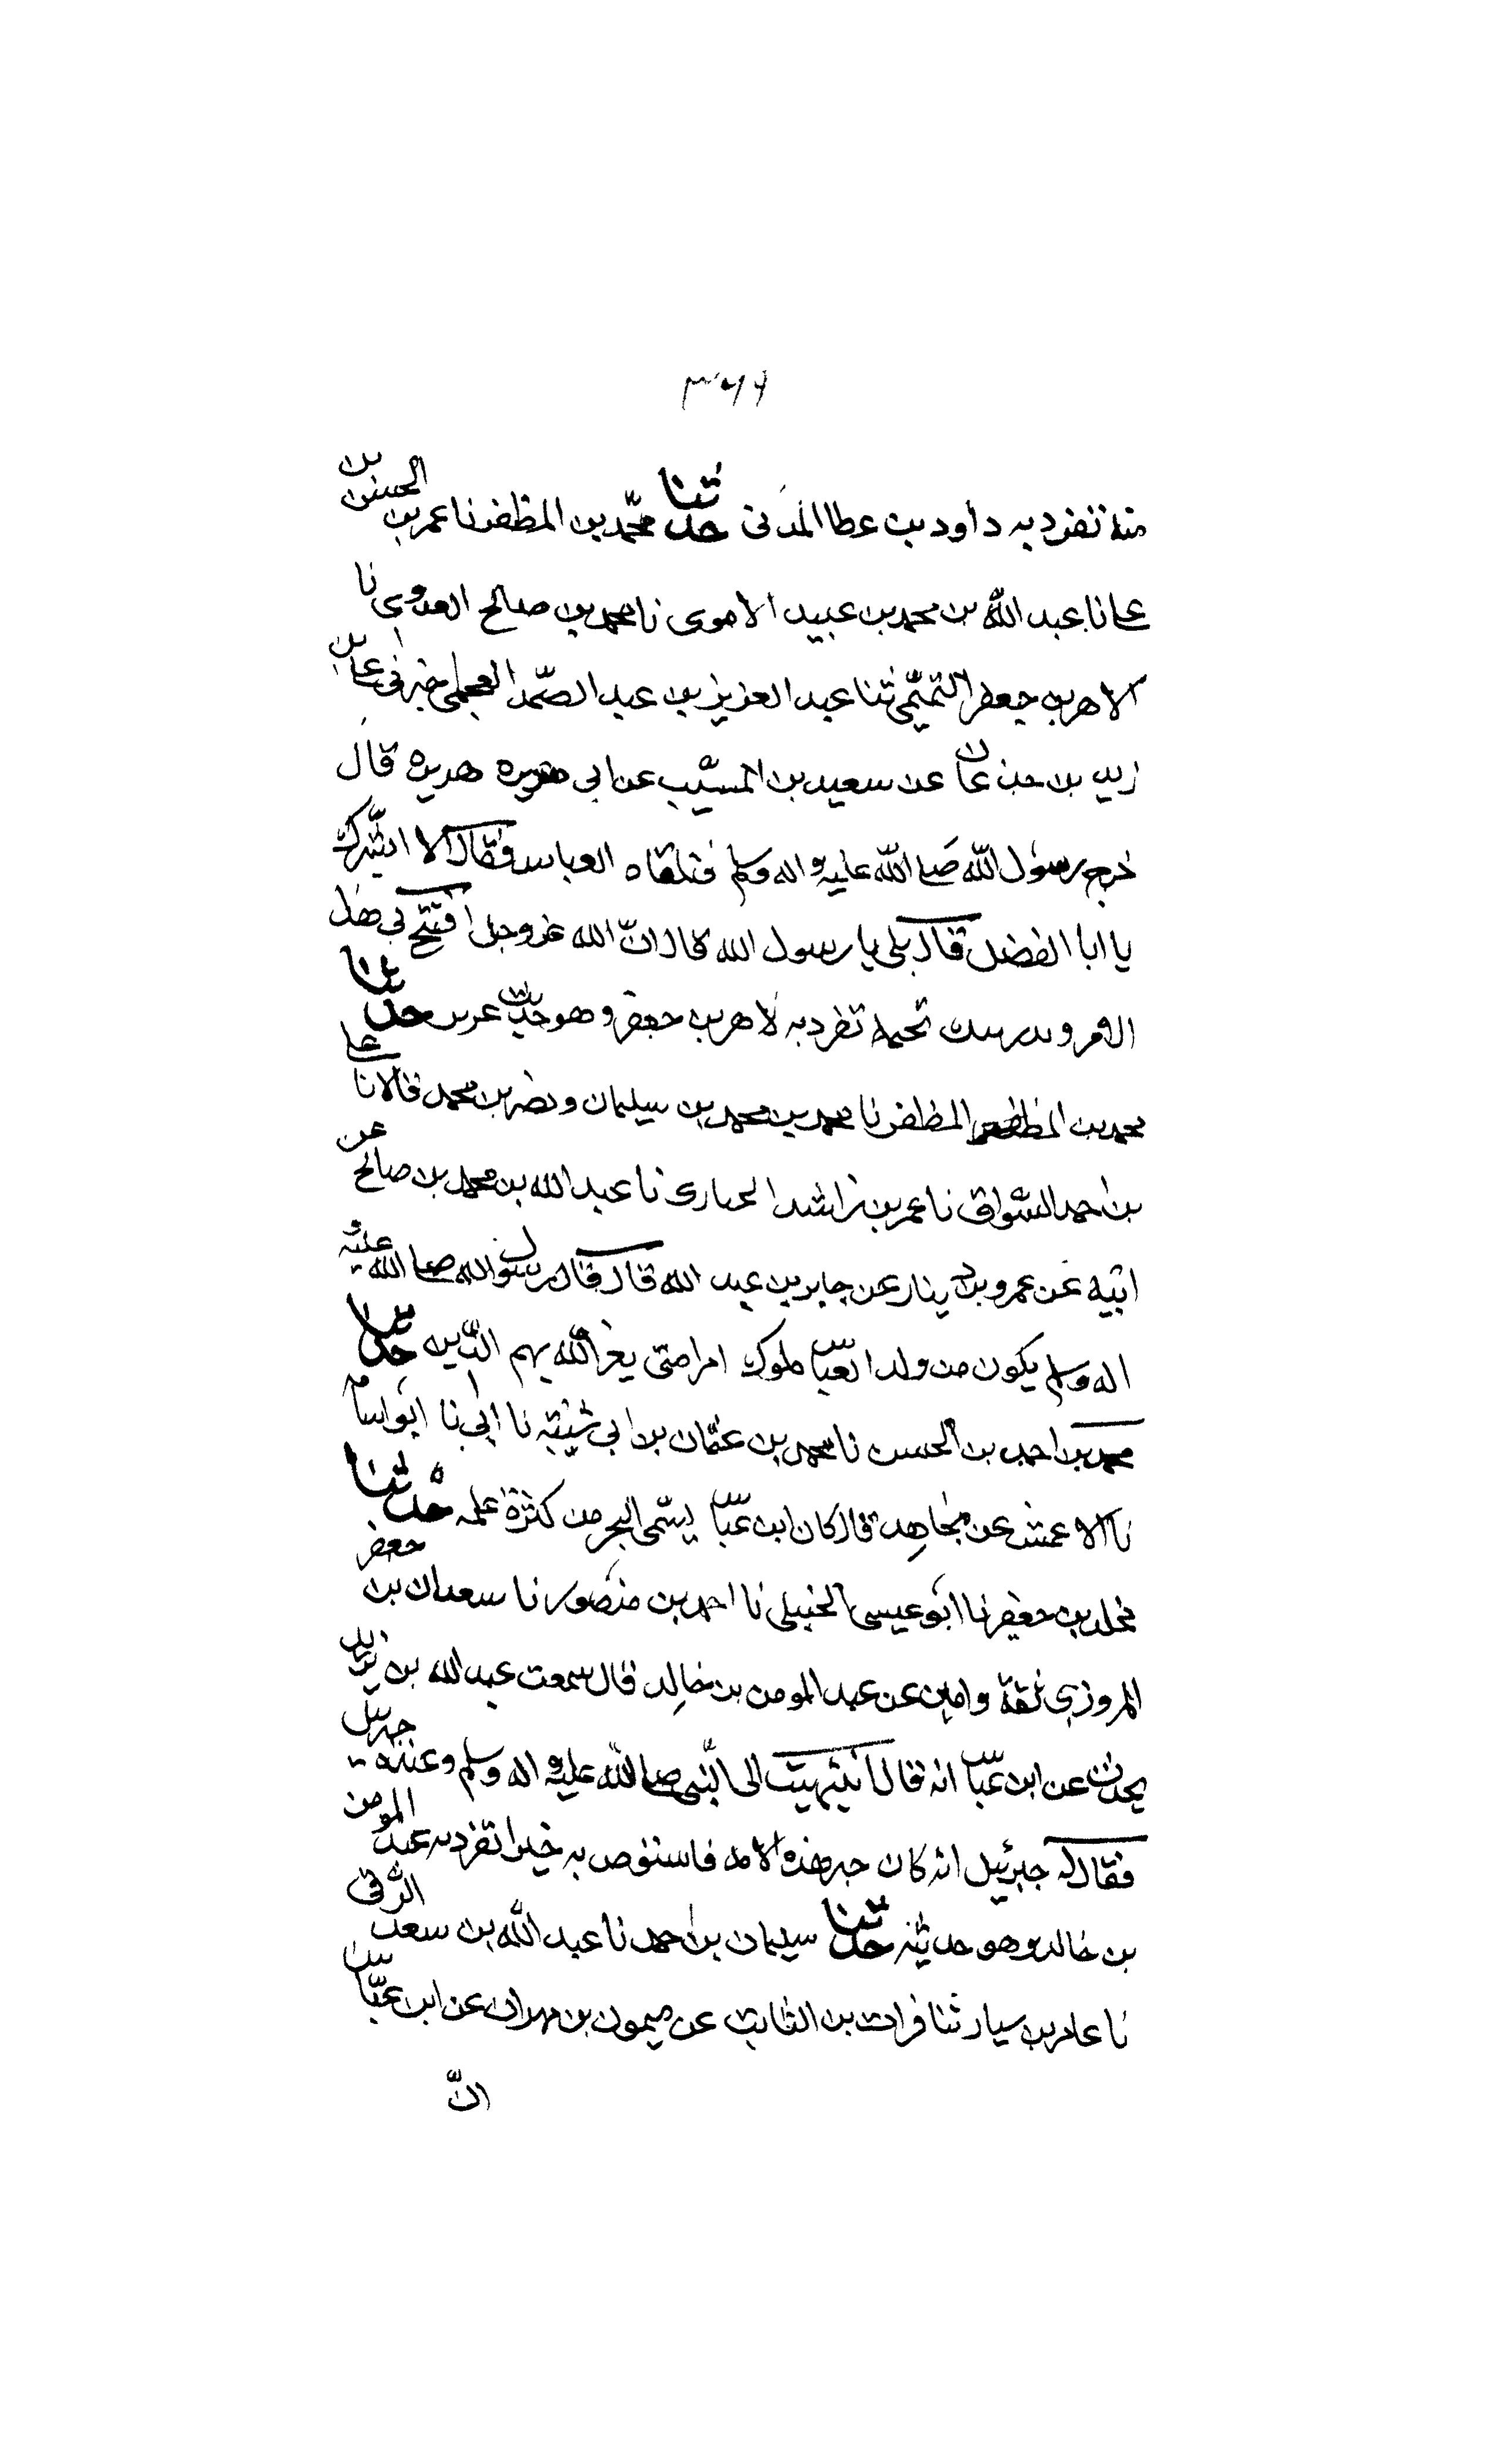 منه تفرد به داود بن عطا المدنى حدثنا محمد بن المظفر نا عمر بن الحسن بن
على نا عبد الله بن محمد بن عبيد الاموى نا محمد بن صالح العدوى نا
لاهز بن جعفر التميمى ثنا عبد العزيز بن عبد الصمد العمى اخبرنى على بن
زيد بن جذعان عن سعيد بن المسيب عن ابى هريره قال
خرج رسول الله صلى الله عليه واله وسلم فتلقاه العباس فقال الا ابشرك
يا ابا الفضل قال بلى يا رسول الله قال ان الله عز وجل افتتح بى هذا
الامر و تفرد به لاهز بن جعفر وهو حديث حدثنا
محمد بن المظفر نا محمد بن محمد بن سليمان ونصر بن محمد قالا نا على
بن احمد السواق نا عمر بن راشد نا عبد الله بن محمد بن صالح عن
ابيه عن عمرو بن دينار عن جابر بن عبد الله قال قال رسول الله صلى الله عليه
اله وسلم يكون من ولد العباس ملوك امر امتى يعز الله بهم الدين حدثنا
محمد بن احمد بن الحسن نا محمد بن عثمان بن ابى شيبه نا ابى نا ابو اسامه
نا الاعمش عن مجاهد قال كان ابن عباس يسمى البحر من كثرة علمه حدثنا
مخلد بن جعفر نا ابو عيسى الختلى نا احمد بن منصور نا سعدان بن جعفر
المروزي ثقة وامين عن عبد المومن بن خالد قال سمعت عبد الله بن
يحدث عن ابن عباس انه قال انتهيت الى النبى صلى الله عليه اله وسلم وعنده جبريل
فقال له جبرئيل انه كان حبر هذه الامه فاستوص به خيرا تفرد به عبد المومن
بن خالد وهو حدثنا سليمان بن احمد نا عبد الله بن سعد الرقى
نا عامر بن سيار ثنا فرات بن الثابت عن ميمون بن مهران عن ابن عباس
ان